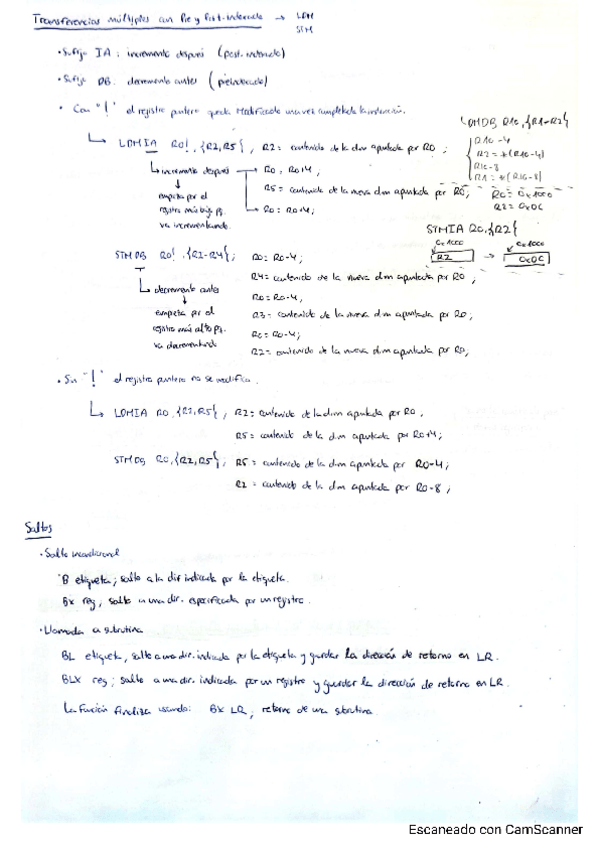 Transferencias múltiples con Pre y Post-indexado → LDM
STM
· Sufijo IA: incremento después (post-indexado)
· Sufijo DB: decremento antes (preindexado)
· Con "!" el registro puntero queda modificado una vez completada la instrucción.
LDMIA R0!, {R2,R5}, R2= contenido de la dm apuntada por R0;
incremento después → R0, R0+4;
R5= contenido de la nueva dm apuntada por R0;
R0: R0+4;
empieza por el
registro más bajo
va incrementando.
LDMDB R16,{R1-R2}
R16-4
R2=*(R16-4)
R16-8
R1=*(R16-8)
R0=0x1000
R2=0x0C
STMIA R0,{R2}
0x1000 0x1000
R2 → 0x0C
STMDB R0!, {R2-R4}; R0=R0-4;
R4= contenido de la nueva dm apuntada por R0;
R0=R0-4;
R3= contenido de la nueva dm apuntada por R0;
R0=R0-4;
R2= contenido de la nueva dm apuntada por R0;
decremento antes
empieza por el
registro más alto
va decrementando
· Sin "!" el registro puntero no se modifica.
LDMIA R0,{R2,R5}, R2= contenido de la dm apuntada por R0;
R5= contenido de la dm apuntada por R0+4;
STMDB R0,{R2,R5}; R5= contenido de la dm apuntada por R0-4;
R2= contenido de la dm apuntada por R0-8;
Saltos
· Salto incondicional
B etiqueta; salto a la dir indicada por la etiqueta.
BX reg; salto a una dir. especificada por un registro.
· Llamada a subrutina
BL etiqueta, salto a una dir. indicada por la etiqueta y guardar la dirección de retorno en LR.
BLX reg; salto a una dir. indicada por un registro y guardar la dirección de retorno en LR.
La función finaliza usando: BX LR; retorno de una subrutina.
Escaneado con CamScanner